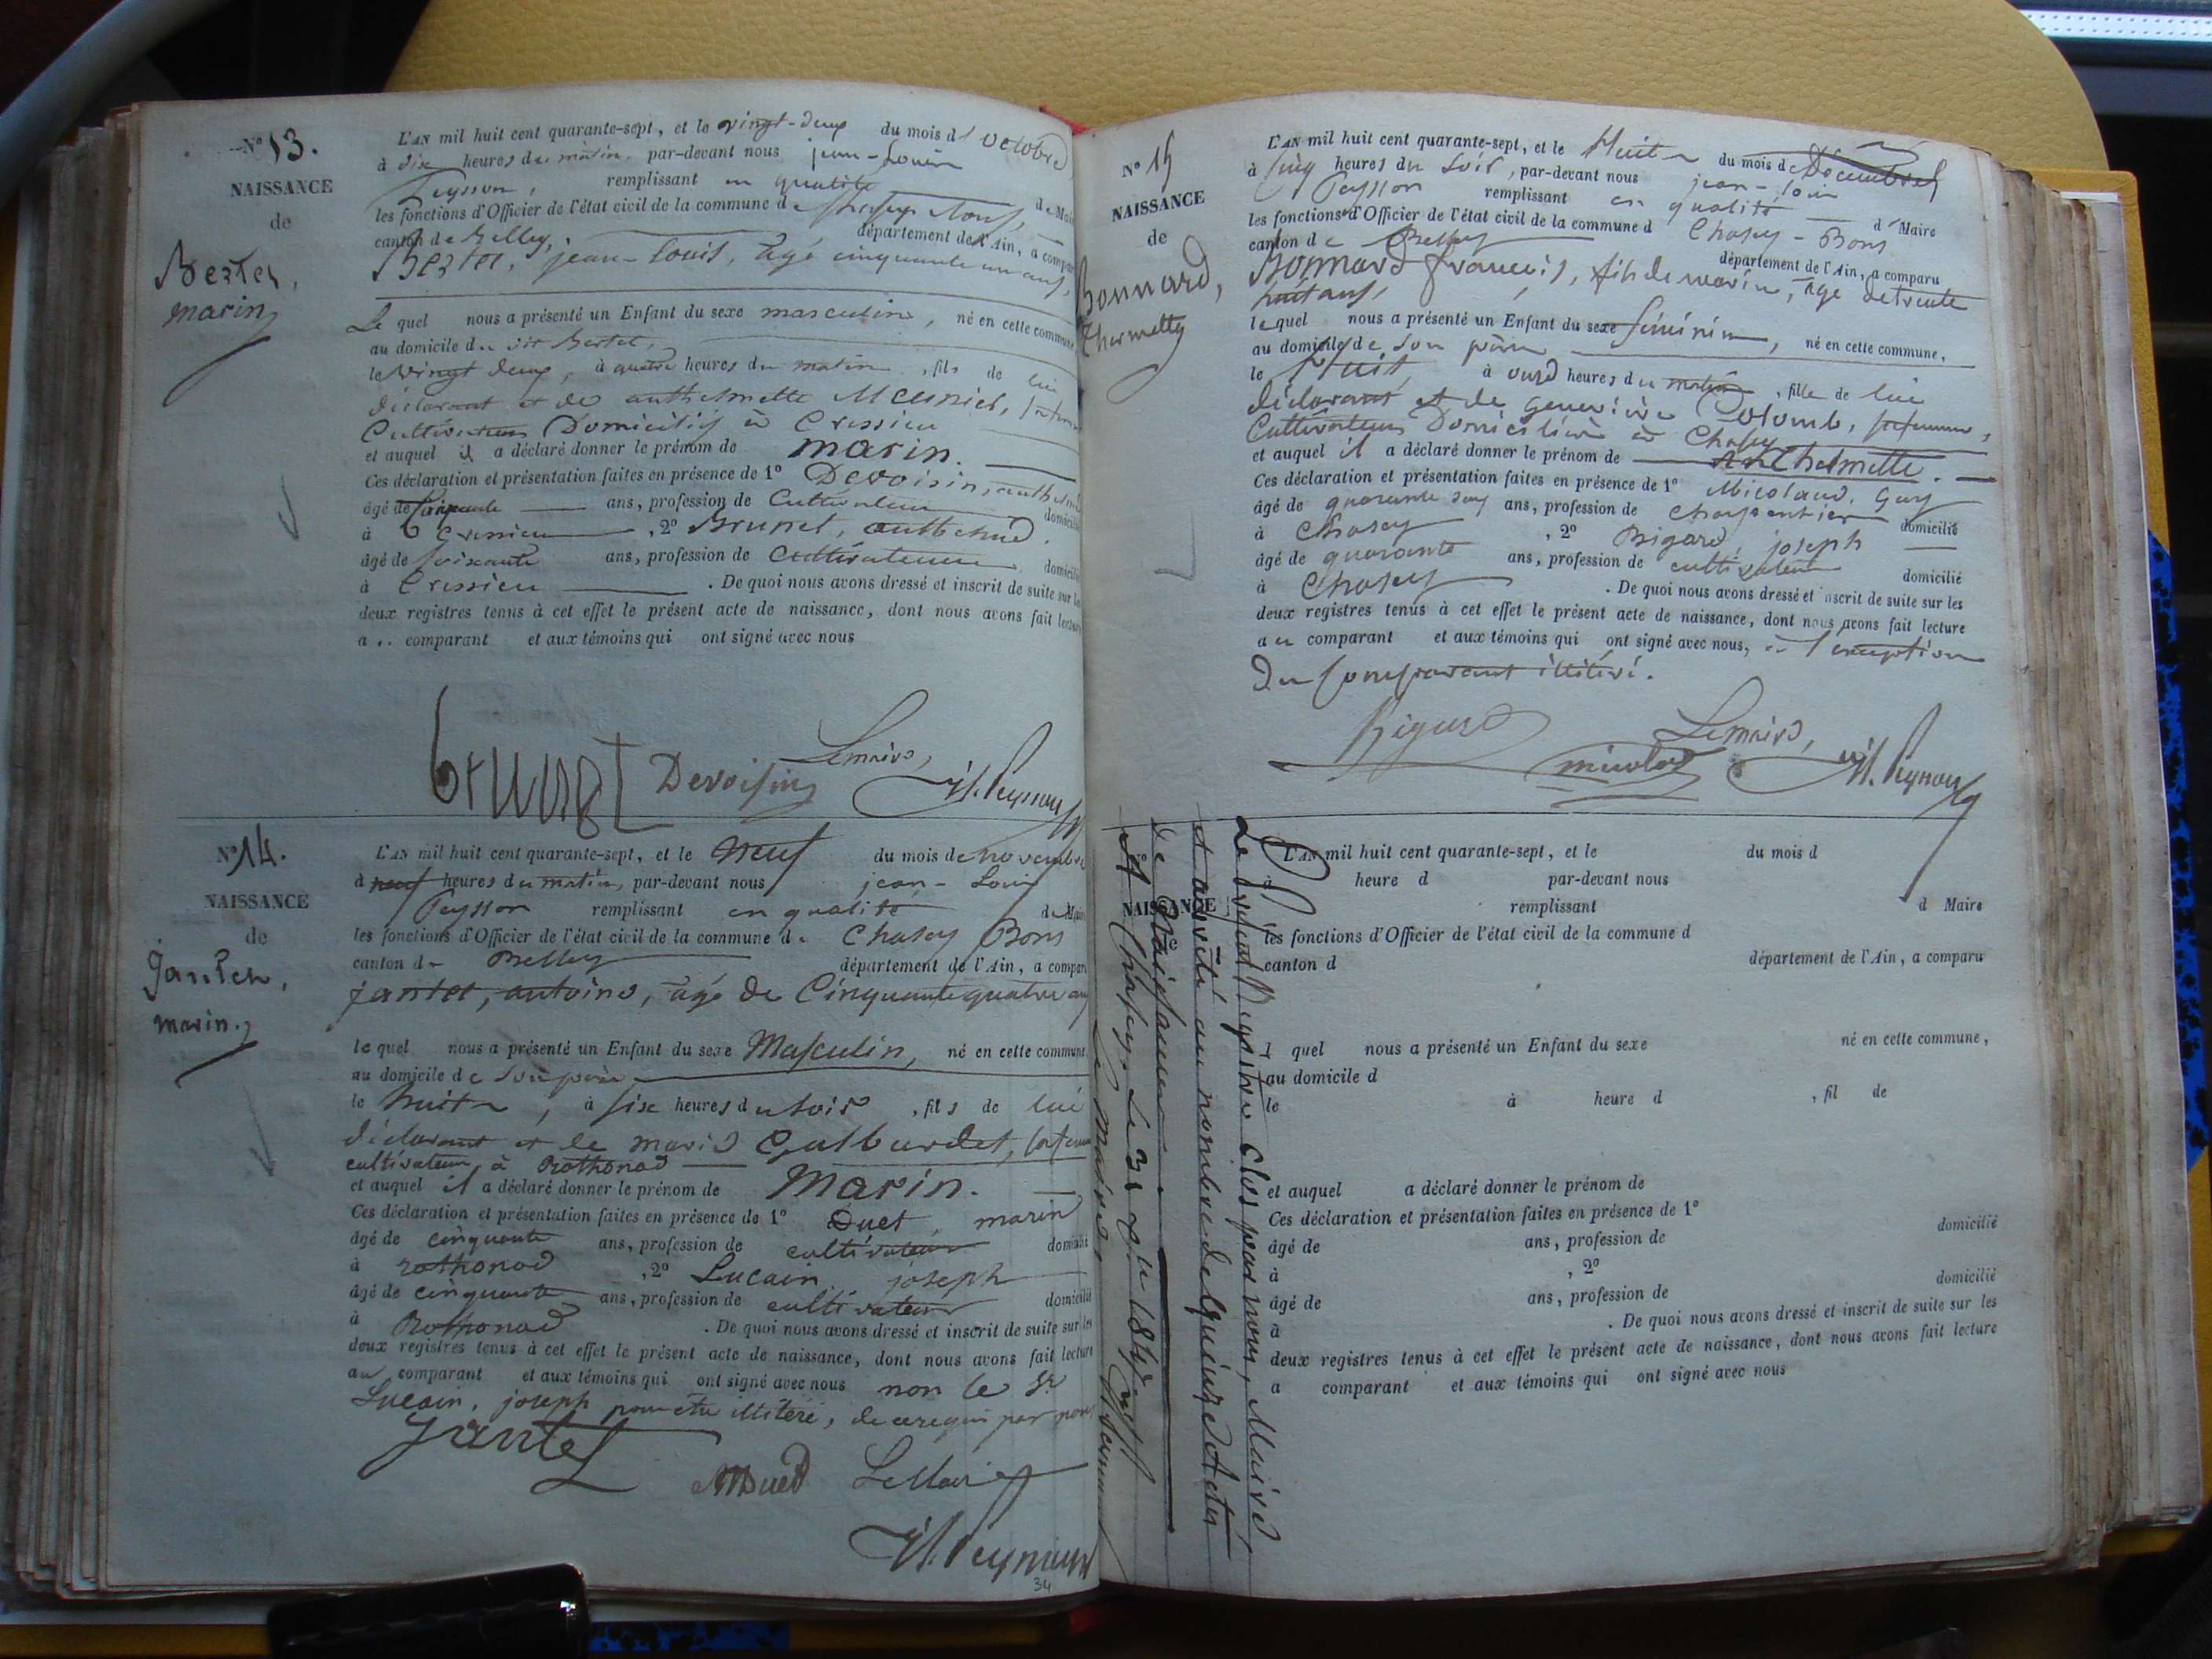 N° 13.
NAISSANCE
de
Bertet,
marin
L'AN mil huit cent quarante-sept, et le vingt-deux du mois d'octobre
à dix heures du matin, par-devant nous jean-Louis
Peysson, remplissant en qualité de Maire
les fonctions d'Officier de l'état civil de la commune de Chasey Bons,
canton de Belley, département de l'Ain, a comparu
Bertet, jean-Louis, âgé cinquante un ans,
Le quel nous a présenté un Enfant du sexe masculin, né en cette commune
au domicile du dit Bertet,
le vingt deux, à quatre heures du matin, fils de lui
déclarant et de anthelmette Meunier, sa femme
Cultivateurs Domiciliés à Cressieu
et auquel il a déclaré donner le prénom de marin.
Ces déclaration et présentation faites en présence de 1° Devoisin, anthelme
âgé de Cinquante ans, profession de Cultivateur domicilié
à Cressieu, 2° Brunet, anthelme,
âgé de soixante ans, profession de Cultivateur domicilié
à Cressieu . De quoi nous avons dressé et inscrit de suite sur les
deux registres tenus à cet effet le présent acte de naissance, dont nous avons fait lecture
a .. comparant et aux témoins qui ont signé avec nous
brunet Devoisin Le maire,
J.L. Peysson
N° 14.
NAISSANCE
de
jantet,
marin.
L'AN mil huit cent quarante-sept, et le neuf du mois de novembre
à neuf heures du matin, par-devant nous jean-Louis
Peysson remplissant en qualité de Maire
les fonctions d'Officier de l'état civil de la commune de Chasey Bons
canton de Belley département de l'Ain, a comparu
jantet, antoine, âgé de Cinquante quatre ans
le quel nous a présenté un Enfant du sexe Masculin, né en cette commune
au domicile de son père
le huit, à six heures du soir, fils de lui
déclarant et de marie Galburdet, sa femme
cultivateurs à Rothonod
et auquel il a déclaré donner le prénom de Marin.
Ces déclaration et présentation faites en présence de 1° Duet, marin
âgé de cinquante ans, profession de cultivateur domicilié
à rothonod, 2° Lucain, joseph
âgé de cinquante ans, profession de cultivateur domicilié
à Rothonod . De quoi nous avons dressé et inscrit de suite sur les
deux registres tenus à cet effet le présent acte de naissance, dont nous avons fait lecture
au comparant et aux témoins qui ont signé avec nous non le Sr
Lucain, joseph pour être illitéré, de ce requis par nous
Jantet
MDuet Le Maire
J.L. Peysson
34
N° 15
NAISSANCE
de
Bonnard,
thermette
L'AN mil huit cent quarante-sept, et le Huit du mois de Décembre
à Cinq heures du soir, par-devant nous jean-Louis
Peysson remplissant en qualité d Maire
les fonctions d'Officier de l'état civil de la commune d Chasey-Bons
canton de Belley département de l'Ain, a comparu
Bonnard françois, fils de marin, âgé de trente
huit ans,
lequel nous a présenté un Enfant du sexe féminin, né en cette commune,
au domicile de son père
le Huit, à onze heures du matin, fille de lui
déclarant et de geneviève Colomb, sa femme,
Cultivateurs Domiciliés à Chasey
et auquel il a déclaré donner le prénom de Anthelmette.
Ces déclaration et présentation faites en présence de 1° Micoland, Guy
âgé de quarante ans, profession de charpentier domicilié
à Chasey, 2° Bigard, joseph
âgé de quarante ans, profession de cultivateur domicilié
à Chasey . De quoi nous avons dressé et inscrit de suite sur les
deux registres tenus à cet effet le présent acte de naissance, dont nous avons fait lecture
au comparant et aux témoins qui ont signé avec nous, à l'exception
Du Comparant illitéré.
Bigard Le maire,
micolod J.L. Peysson
NAISSANCE
L'AN mil huit cent quarante-sept, et le du mois d
à heure d par-devant nous
remplissant d Maire
les fonctions d'Officier de l'état civil de la commune d
canton d département de l'Ain, a comparu
l quel nous a présenté un Enfant du sexe né en cette commune,
au domicile d
le à heure d , fil de
et auquel a déclaré donner le prénom de
Ces déclaration et présentation faites en présence de 1°
âgé de ans, profession de domicilié
à , 2°
âgé de ans, profession de domicilié
à . De quoi nous avons dressé et inscrit de suite sur les
deux registres tenus à cet effet le présent acte de naissance, dont nous avons fait lecture
a comparant et aux témoins qui ont signé avec nous
Le présent Registre Clos par nous, Maire
et arrêté au nombre de Quinze Actes
de Naissance
A Chasey, Le 31 Xbre 1847
Le maire
J.L. Peysson